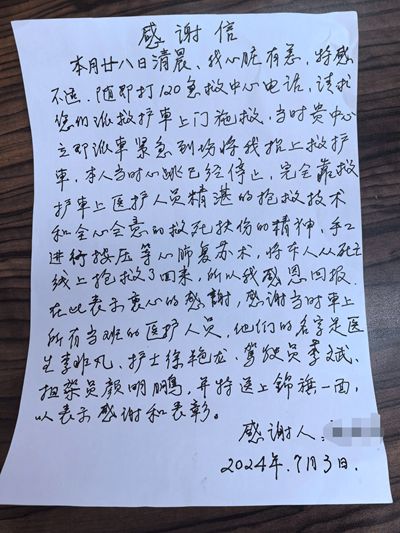 感谢信
本月廿八日清晨、我心脏有恙，特感
不适．随即打120急救中心电话，请求
您们派救护车上门施救，当时贵中心
立即派车紧急到场将我抬上救护
车．本人当时心跳已经停止，完全靠救
护车上医护人员精湛的抢救技术
和全心全意的救死扶伤的精神，手工
进行按压等心肺复苏术，将本人从死亡
线上抢救了回来，所以我感恩回报．
在此表示衷心的感謝，感谢当时车上
所有当班的医护人员，他们的名字是医
生李非凡、护士徐艳龙、驾驶员李文斌、
担架员颜明鵬，并特送上錦旗一面，
以表示感谢和表彰。
感谢人：
2024年.7月3日.